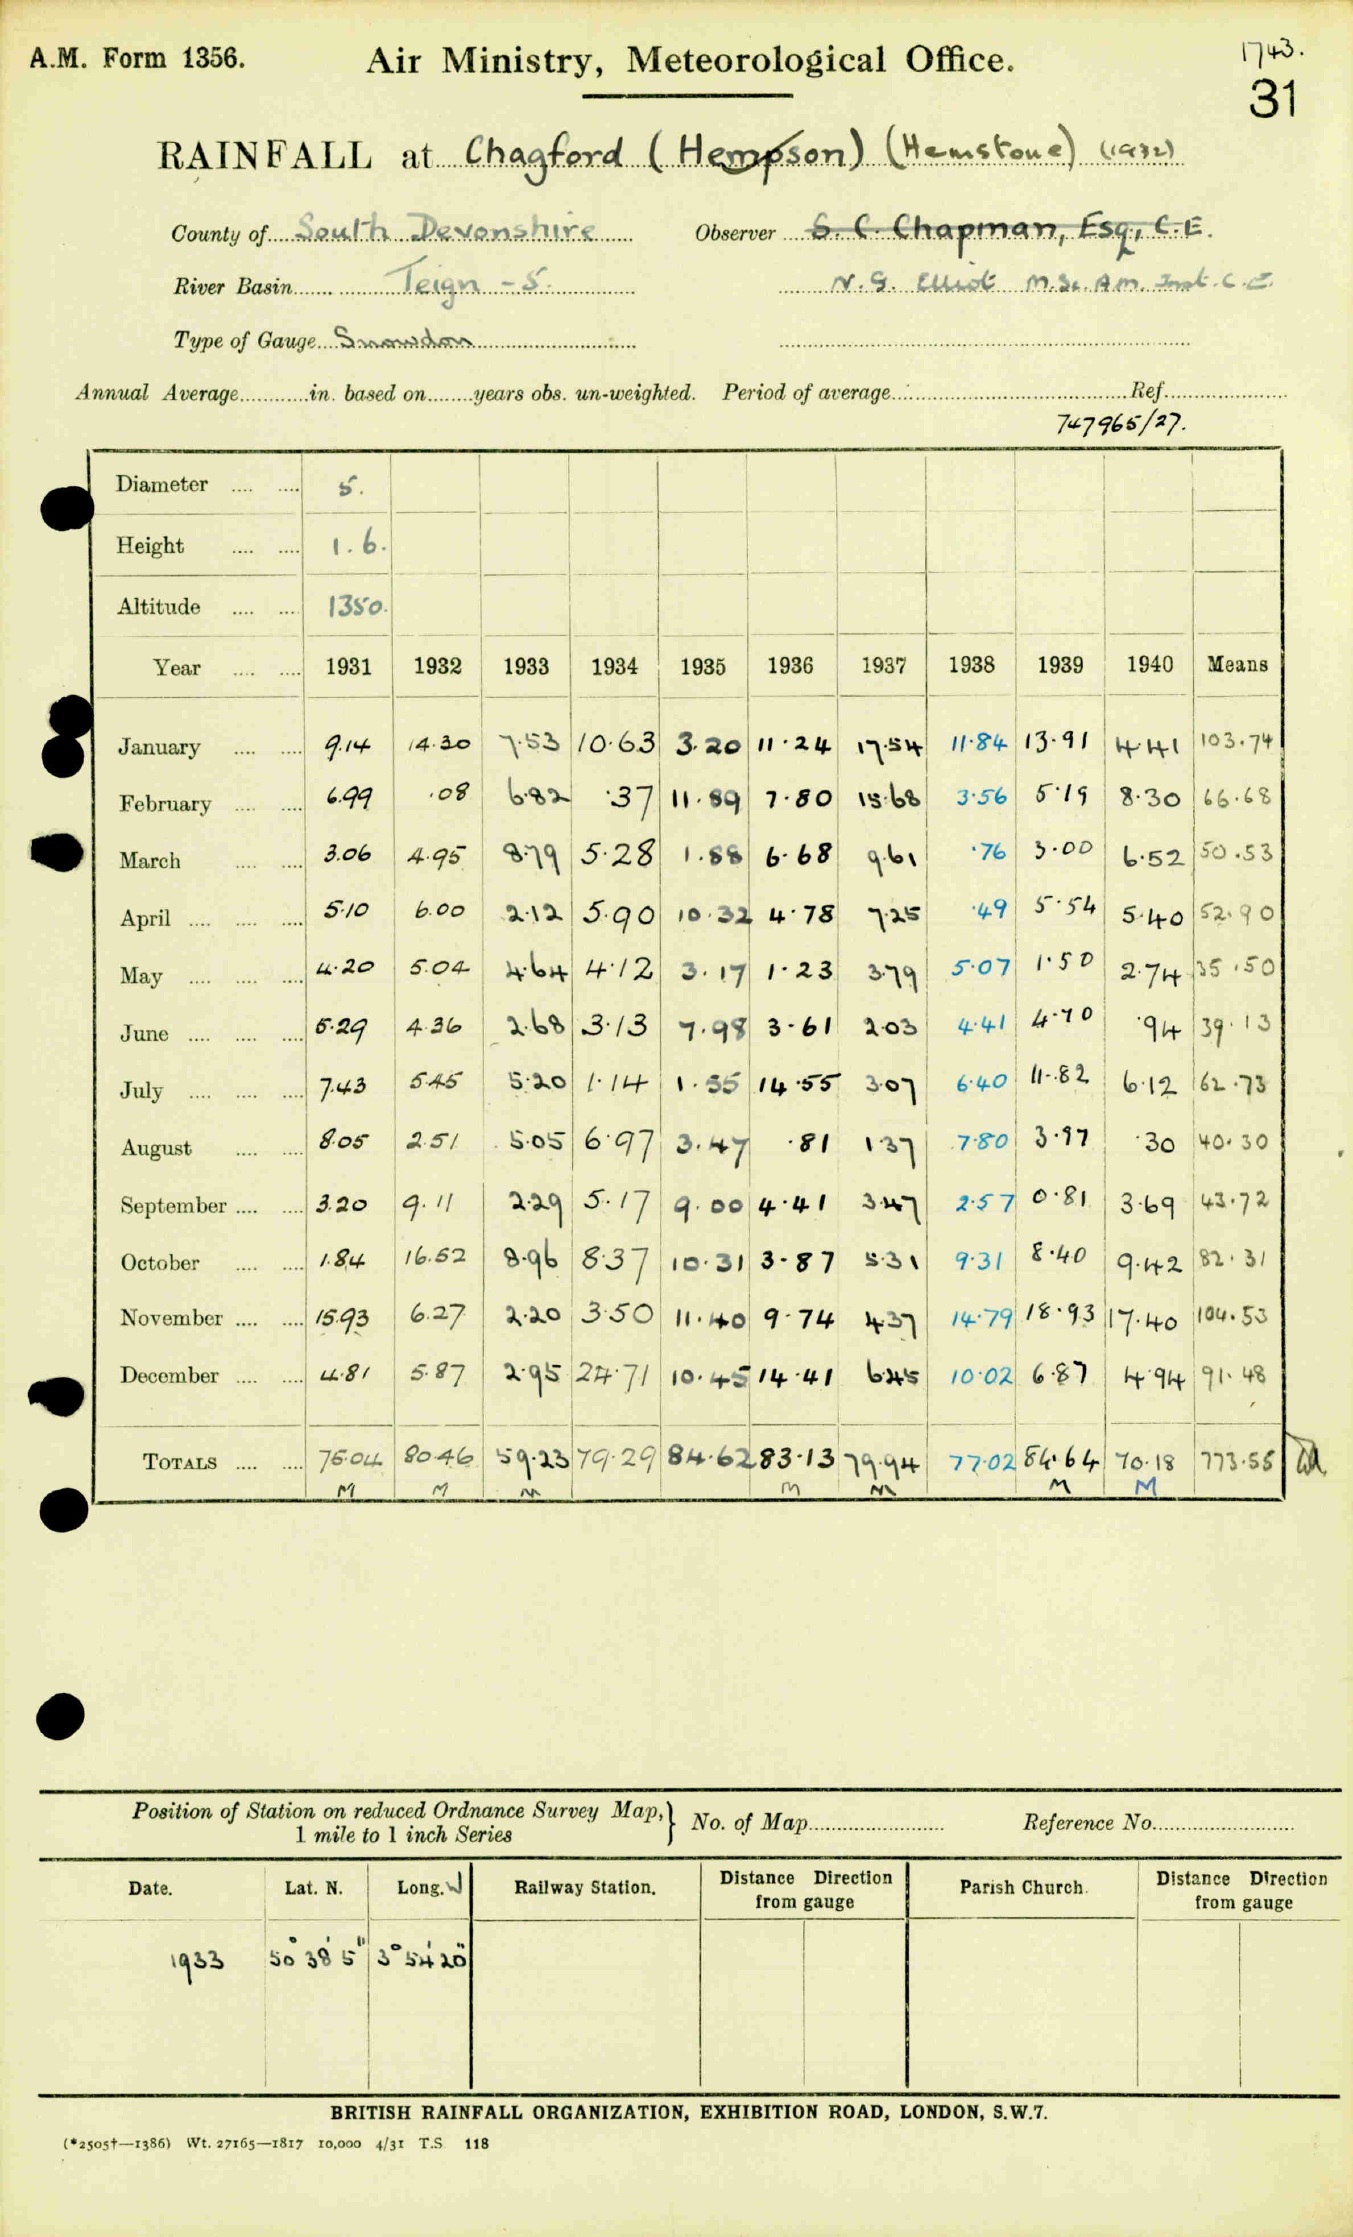 1743.
A.M. Form 1356. Air Ministry, Meteorological Office. 31
RAINFALL at Chagford (Hempson) (Hemstone) (1932)
County of South Devonshire Observer S. C. Chapman, Esq, C.E.
River Basin Teign - 5. N. G. Elliot M.Sc. A.M. Inst. C.E.
Type of Gauge Snowdon
Annual Average............in. based on........years obs. un-weighted. Period of average............Ref............
747965/27.
Diameter .... .... 5.
Height .... .... 1.6.
Altitude .... .... 1350.
Year .... .... 1931 1932 1933 1934 1935 1936 1937 1938 1939 1940 Means
January .... .... 9.14 14.30 7.53 10.63 3.20 11.24 17.54 11.84 13.91 4.41 103.74
February .... .... 6.99 .08 6.82 .37 11.89 7.80 15.68 3.56 5.19 8.30 66.68
March .... .... 3.06 4.95 8.79 5.28 1.88 6.68 9.61 .76 3.00 6.52 50.53
April .... .... .... 5.10 6.00 2.12 5.90 10.32 4.78 7.25 .49 5.54 5.40 52.90
May .... .... .... 4.20 5.04 4.64 4.12 3.17 1.23 3.79 5.07 1.50 2.74 35.50
June .... .... .... 5.29 4.36 2.68 3.13 7.98 3.61 2.03 4.41 4.70 .94 39.13
July .... .... .... 7.43 5.45 5.20 1.14 1.55 14.55 3.07 6.40 11.82 6.12 62.73
August .... .... 8.05 2.51 5.05 6.97 3.47 .81 1.37 7.80 3.97 .30 40.30
September .... .... 3.20 9.11 2.29 5.17 9.00 4.41 3.47 2.57 0.81 3.69 43.72
October .... .... 1.84 16.52 8.96 8.37 10.31 3.87 5.31 9.31 8.40 9.42 82.31
November .... .... 15.93 6.27 2.20 3.50 11.40 9.74 4.37 14.79 18.93 17.40 104.53
December .... .... 4.81 5.87 2.95 24.71 10.45 14.41 6.45 10.02 6.87 4.94 91.48
TOTALS .... .... 75.04 80.46 59.23 79.29 84.62 83.13 79.94 77.02 84.64 70.18 773.55
M M M M M M M
Position of Station on reduced Ordnance Survey Map, 1 mile to 1 inch Series } No. of Map............ Reference No............
Date. Lat. N. Long. W Railway Station. Distance Direction from gauge Parish Church. Distance Direction from gauge
1933 50° 38' 5" 3° 54' 20"
BRITISH RAINFALL ORGANIZATION, EXHIBITION ROAD, LONDON, S.W.7.
(*2505†—1386) Wt. 27165—1817 10,000 4/31 T.S. 118